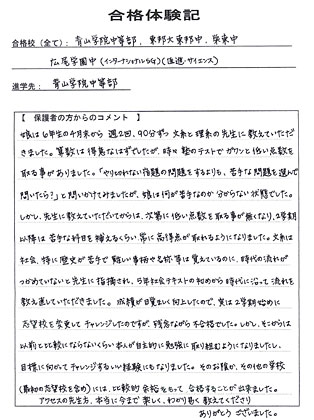 合格体験記
合格校（全て）：青山学院中等部、東邦大東邦中、栄東中
広尾学園中（インターナショナルSG）（医進・サイエンス）
進学先：青山学院中等部
【 保護者の方からのコメント 】
娘は6年生の4月末から 週2回、90分ずつ 文系と理系の先生に教えていただ
きました。算数は得意なはずでしたが、時々塾のテストでガクンと低い点数を
取る事がありました。「やりきれない宿題の問題をするよりも、苦手な問題を選んで
聞いたら？」と問いかけてみましたが、娘は何が苦手なのか分からない状態でした。
しかし、先生に教えていただいてからは、次第に低い点数を取る事が無くなり、2学期
以降は苦手な科目を補えるくらい常に高得点が取れるようになりました。文系は
社会、特に歴史が苦手で難しい事柄や名称等は覚えているのに、時代の流れが
つかめていないと先生に指摘され、5年社会テキストの初めから時代に沿って流れを
教え直していただきました。成績が目覚ましく向上したので、実は2学期始めに
志望校を変更してチャレンジしたのですが、残念ながら不合格でした。しかし、そこからは
以前とは比較にならないくらい本人が自主的に勉強に取り組むようになりましたし、
目標に向かってチャレンジするいい経験にもなりました。そのお陰か、その他の学校
（最初の志望校を含め）には、比較的余裕をもって合格することが出来ました。
アクセスの先生方、本当に今まで楽しく、わかり易く教えてくださり
ありがとうございました。